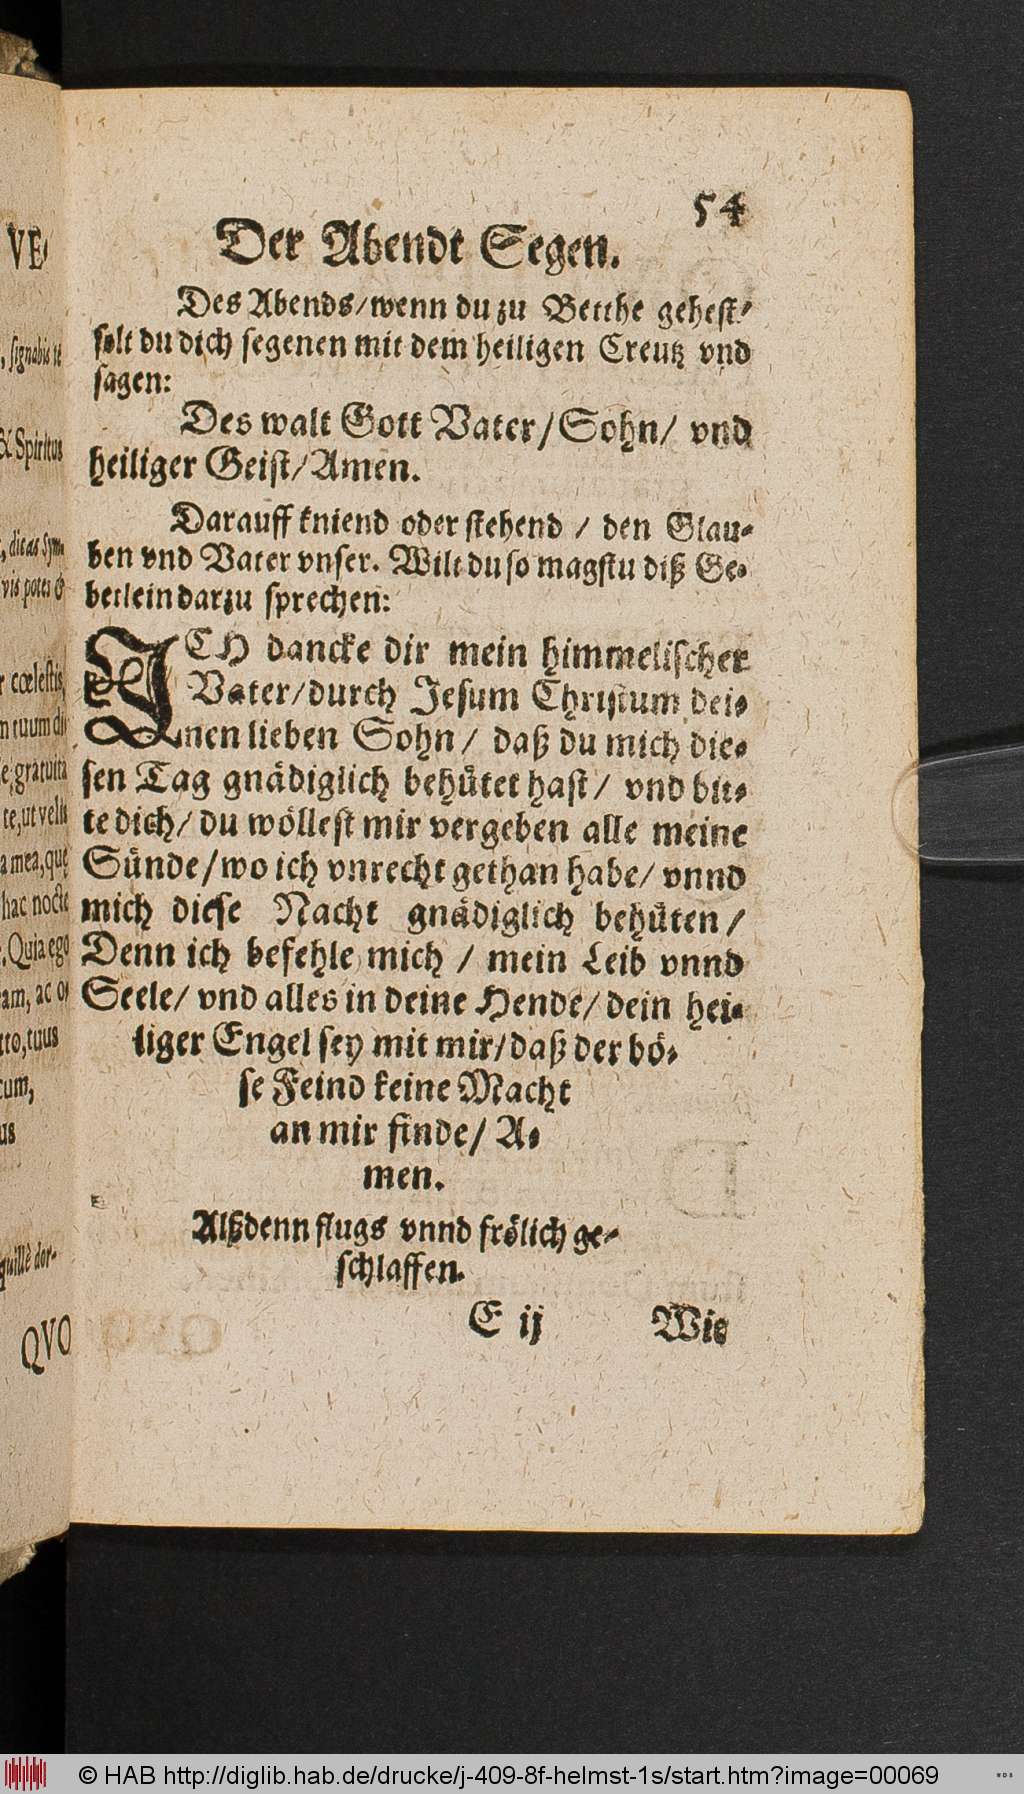 VE-
, signabis te
& Spiritus
, dicas Sym-
vis potes &
r cœlestis,
m tuum di-
e, gratuita
te, ut velis
a mea, quę
hac nocte
. Quia ego
am, ac
tuus
cum,
us
quillè dor-
QVO
54
Der Abendt Segen.
Des Abends/wenn du zu Betthe gehest/
solt du dich segenen mit dem heiligen Creutz vnd
sagen:
Des walt Gott Vater/Sohn/ vnd
heiliger Geist/Amen.
Darauff kniend oder stehend / den Glau-
ben vnd Vater vnser. Wilt du so magstu diß Ge-
betlein darzu sprechen:
ICH dancke dir mein himmelischer
Vater/durch Jesum Christum dei-
nen lieben Sohn/ daß du mich die-
sen Tag gnädiglich behütet hast/ vnd bit-
te dich/ du wöllest mir vergeben alle meine
Sünde/wo ich vnrecht gethan habe/ vnnd
mich diese Nacht gnädiglich behüten/
Denn ich befehle mich / mein Leib vnnd
Seele/ vnd alles in deine Hende/ dein hei-
liger Engel sey mit mir/daß der bö-
se Feind keine Macht
an mir finde/ A-
men.
Alßdenn flugs vnnd frölich ge-
schlaffen.
E ij Wie
© HAB http://diglib.hab.de/drucke/j-409-8f-helmst-1s/start.htm?image=00069